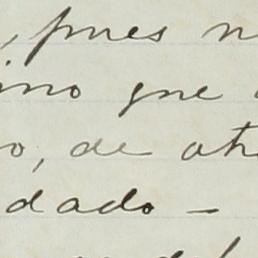 , pues n
ino que
o, de otr
dado —